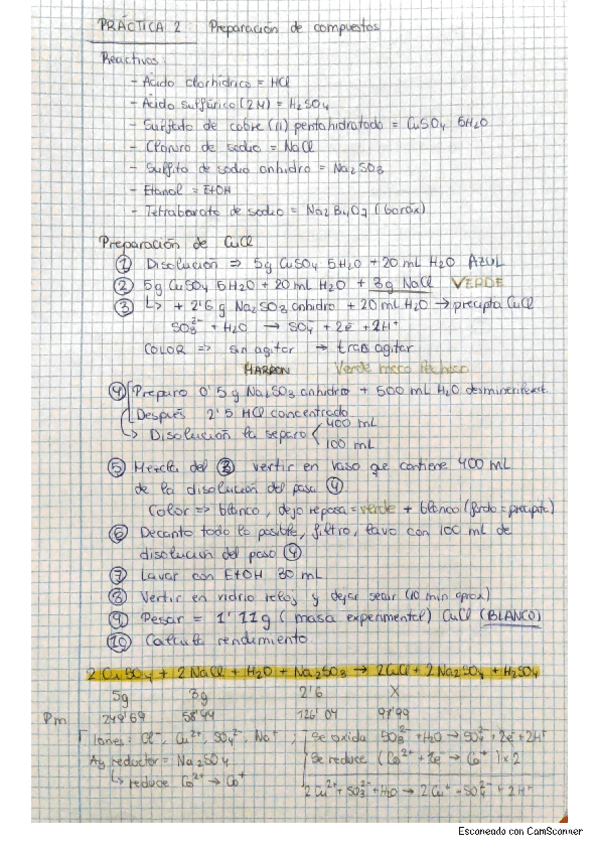 PRÁCTICA 2 Preparación de compuestos
Reactivos:
- Ácido clorhídrico = HCl
- Ácido sulfúrico (2N) = H₂SO₄
- Sulfato de cobre (II) pentahidratado = CuSO₄ 5H₂O
- Cloruro de sodio = NaCl
- Sulfito de sodio anhidro = Na₂SO₃
- Etanol = EtOH
- Tetraborato de sodio = Na₂B₄O₇ (borax)
Preparación de CuCl
① Disolución ⇒ 5g CuSO₄ 5H₂O + 20 mL H₂O AZUL
② 5g CuSO₄ 5H₂O + 20 mL H₂O + 3g NaCl VERDE
③ ↳ + 2'6 g Na₂SO₃ anhidro + 20 mL H₂O → precipta CuCl
SO₃²⁻ + H₂O → SO₄²⁻ + 2e⁻ + 2H⁺
COLOR => sin agitar → tras agitar
MARRON Verde moco
④ Preparo 0'5g Na₂SO₃ anhidro + 500 mL H₂O
Después 2'5 HCl concentrado
↳ Disolución la separo 400 mL
100 mL
⑤ Mezcla del ③ vertir en vaso que contiene 400 mL
de la disolución del paso ④
Color => blanco, dejo reposa = verde + blanco (fondo = precipita)
⑥ Decanto todo lo posible, filtro, lavo con 100 mL de
disolución del paso ④
⑦ Lavar con EtOH 30 mL
⑧ Vertir en vidrio reloj y dejar secar (10 min aprox)
⑨ Pesar = 1'11g (masa experimental) CuCl (BLANCO)
⑩ Calcula rendimiento
2 CuSO₄ + 2 NaCl + H₂O + Na₂SO₃ → 2 CuCl + 2 Na₂SO₄ + H₂SO₄
5g 3g 2'6 X
Pm 249'69 58'44 126'04 98'99
Iones: Cl⁻, Cu²⁺, SO₄²⁻, Na⁺ Se oxida SO₃²⁻ + H₂O → SO₄²⁻ + 2e⁻ + 2H⁺
Ag reductor = Na₂SO₄ Se reduce (Cu²⁺ + 1e⁻ → Cu⁺) x 2
↳ reduce Cu²⁺ → Cu⁺ 2 Cu²⁺ + SO₃²⁻ + H₂O → 2 Cu⁺ + SO₄²⁻ + 2H⁺
Escaneado con CamScanner